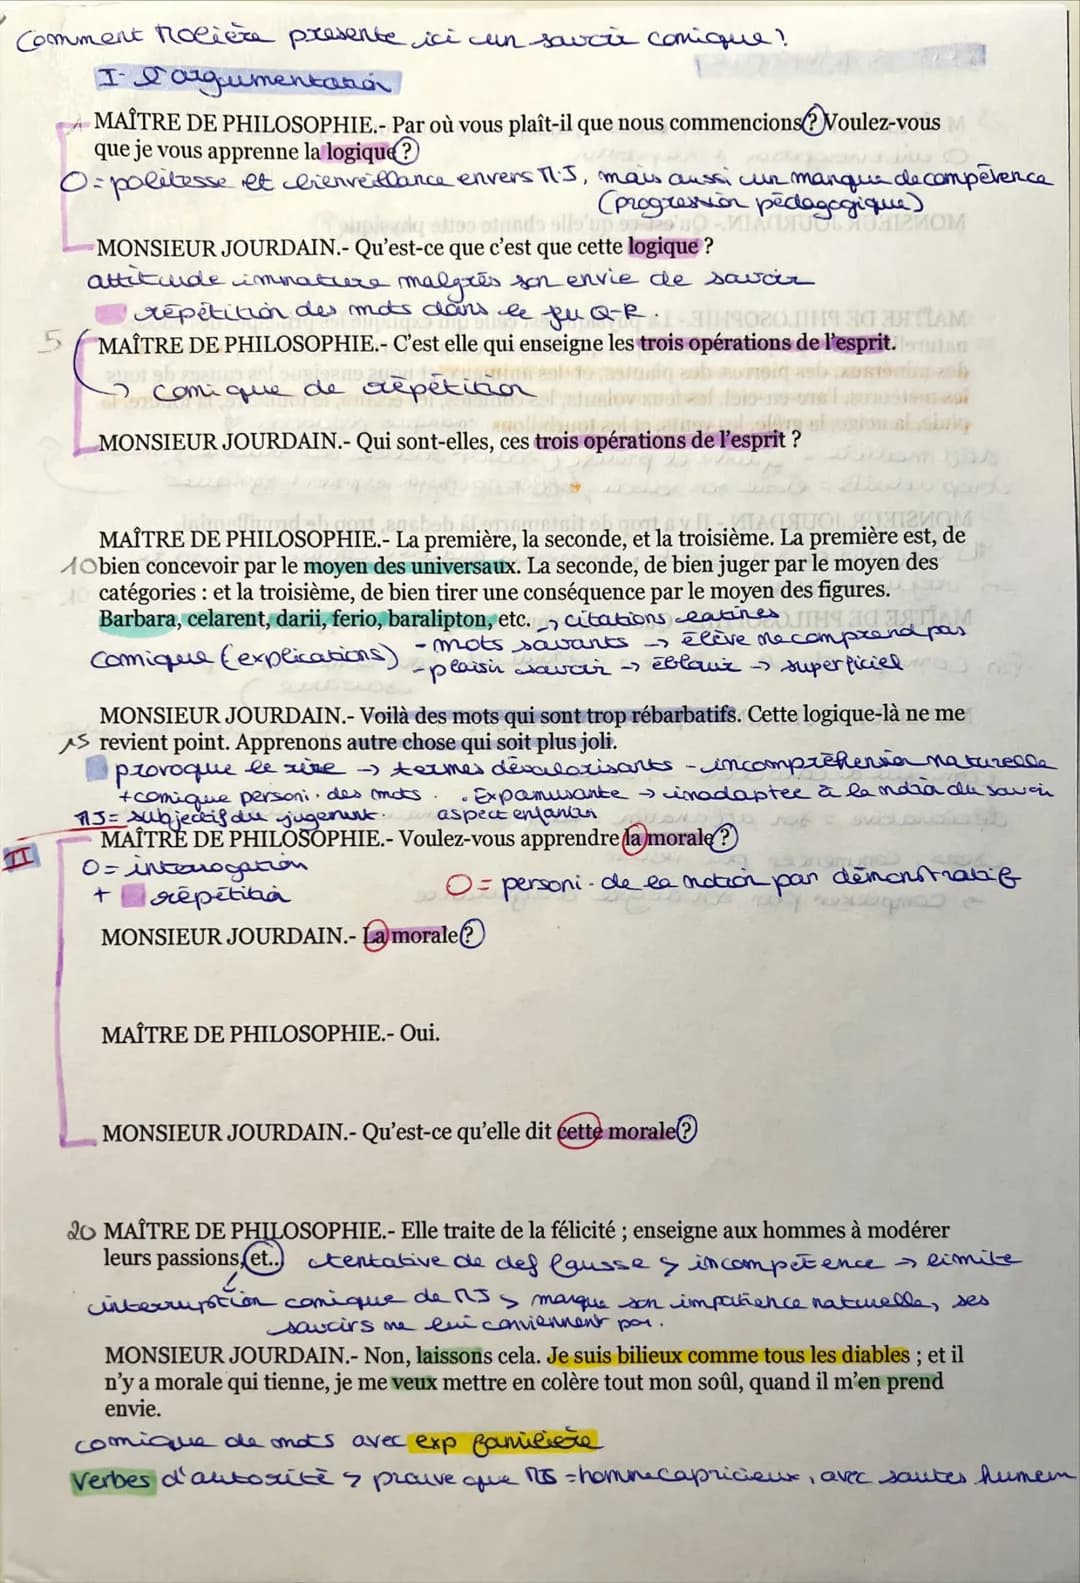 Comment Molière présente ici un savoir comique?
I- l'argumentation
1 MAÎTRE DE PHILOSOPHIE.- Par où vous plaît-il que nous commencions? Voulez-vous
que je vous apprenne la logique?
O = politesse et bienveillance envers M.J, mais aussi un manque de compétence
(progression pédagogique)
MONSIEUR JOURDAIN.- Qu'est-ce que c'est que cette logique ?
attitude immature malgrès son envie de savoir
répétition des mots dans le jeu Q-R.
5 MAÎTRE DE PHILOSOPHIE.- C'est elle qui enseigne les trois opérations de l'esprit.
→ comique de répétition
MONSIEUR JOURDAIN.- Qui sont-elles, ces trois opérations de l'esprit ?
MAÎTRE DE PHILOSOPHIE.- La première, la seconde, et la troisième. La première est, de
10 bien concevoir par le moyen des universaux. La seconde, de bien juger par le moyen des
catégories : et la troisième, de bien tirer une conséquence par le moyen des figures.
Barbara, celarent, darii, ferio, baralipton, etc. → citations latines
comique (explications) - mots savants → élève ne comprend pas
- plaisir savoir → éblouir → superficiel
MONSIEUR JOURDAIN.- Voilà des mots qui sont trop rébarbatifs. Cette logique-là ne me
15 revient point. Apprenons autre chose qui soit plus joli.
provoque le rire → termes dévalorisants - incompréhension naturelle
+ comique personi. des mots. . Exp amusante → inadaptée à la notion du savoir
MJ = subjectif du jugement. aspect enfantin
II MAÎTRE DE PHILOSOPHIE.- Voulez-vous apprendre la morale?
O = interrogation
+ répétition O = personi. de la notion par démonstratif
MONSIEUR JOURDAIN.- La morale?
MAÎTRE DE PHILOSOPHIE.- Oui.
MONSIEUR JOURDAIN.- Qu'est-ce qu'elle dit cette morale?
20 MAÎTRE DE PHILOSOPHIE.- Elle traite de la félicité ; enseigne aux hommes à modérer
leurs passions, et.. tentative de def fausse → incompétence → limite
interruption comique de MJ → marque son impatience naturelle, ses
savoirs ne lui conviennent pas.
MONSIEUR JOURDAIN.- Non, laissons cela. Je suis bilieux comme tous les diables ; et il
n'y a morale qui tienne, je me veux mettre en colère tout mon soûl, quand il m'en prend
envie.
comique de mots avec exp familière
Verbes d'autorité → prouve que MJ = homme capricieux, avec sautes humeur